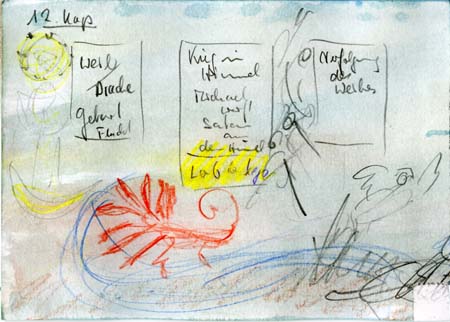 12. Kap
Weib
Drache
Geburt
Flucht
Krieg im
Himmel
Michael wirft
Satan
aus
dem Himmel
Verfolgung
des
Weibes